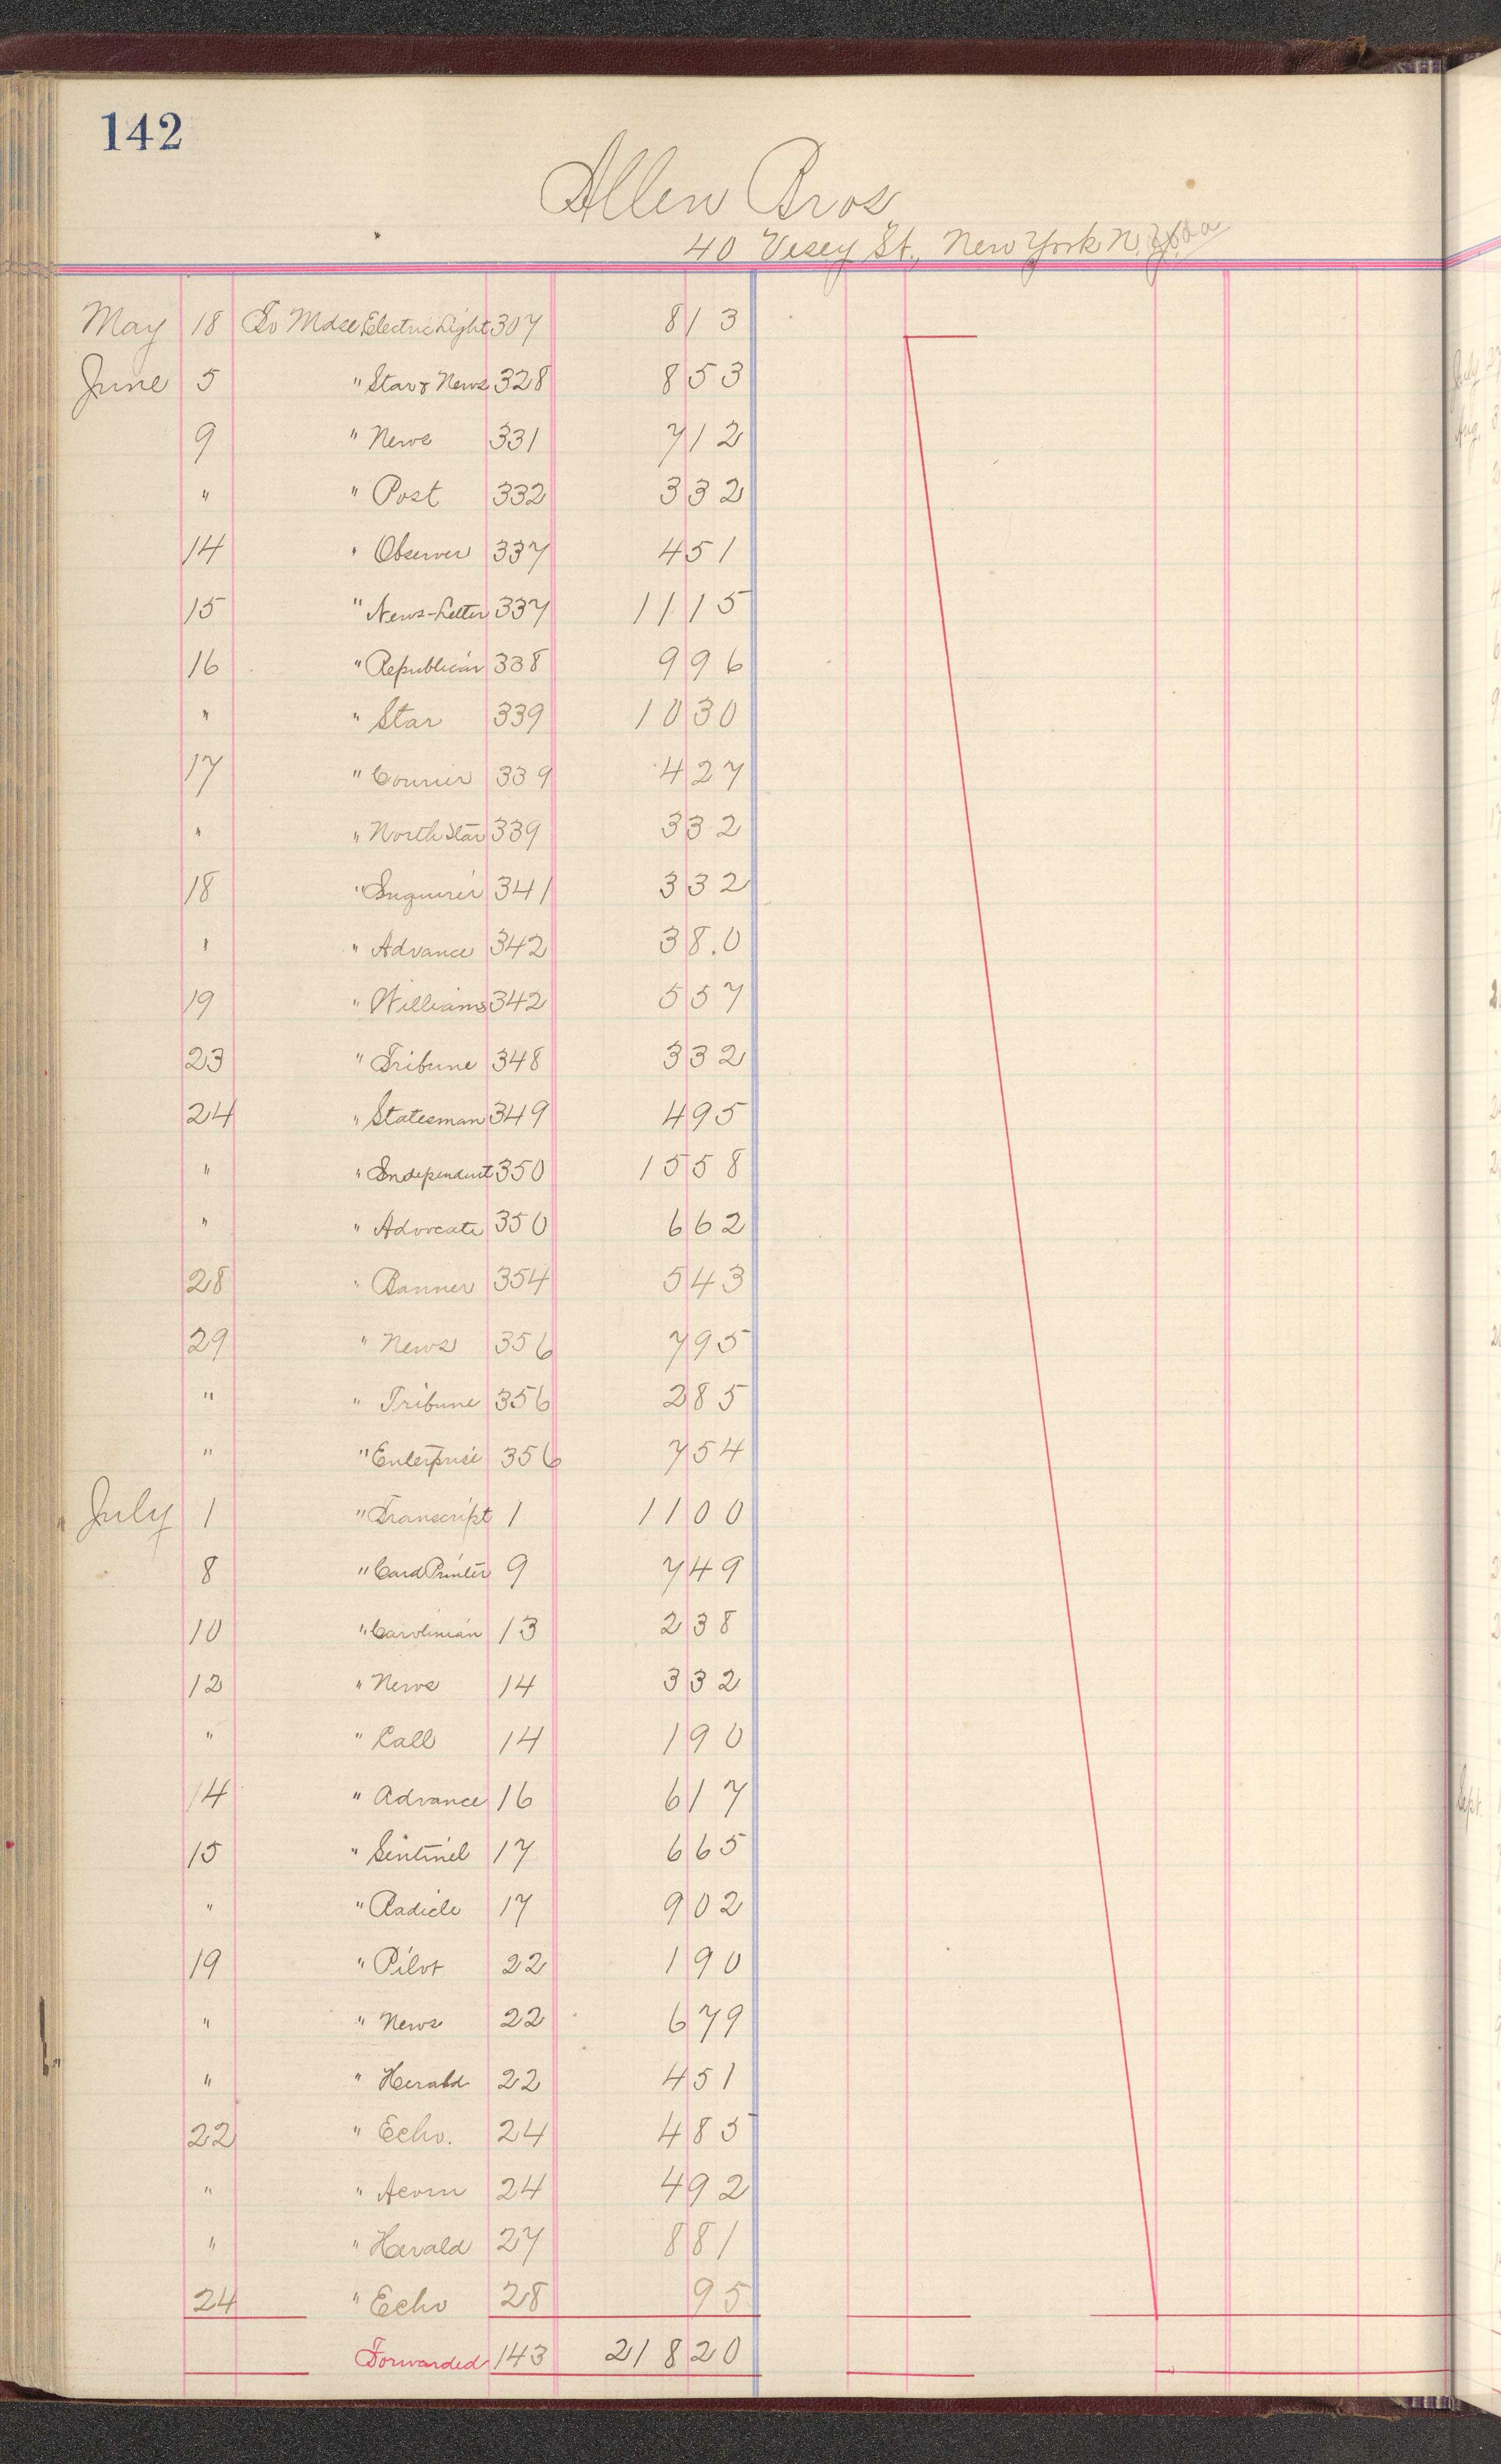 142
Allen Bros
40 Vesey St., New York N.Y.
May 18 To Mdse Electric Light 307 8 13
June 5 " Star & News 328 8 53
9 " News 331 7 12
" " Post 332 3 32
14 " Observer 337 4 51
15 " News-Letter 337 11 15
16 " Republican 338 9 96
" " Star 339 10 30
17 " Courier 339 4 27
" " North Star 339 3 32
18 " Inquirer 341 3 32
" " Advance 342 3 8.0
19 " Williams 342 5 57
23 " Tribune 348 3 32
24 " Statesman 349 4 95
" " Independent 350 15 58
" " Advocate 350 6 62
28 " Banner 354 5 43
29 " News 356 7 95
" " Tribune 356 2 85
" " Enterprise 356 7 54
July 1 " Transcript 1 11 00
8 " Card Printer 9 7 49
10 " Carolinian 13 2 38
12 " News 14 3 32
" " Call 14 1 90
14 " Advance 16 6 17
15 " Sentinel 17 6 65
" " Radicle 17 9 02
19 " Pilot 22 1 90
" " News 22 6 79
" " Herald 22 4 51
22 " Echo. 24 4 85
" " Acorn 24 4 92
" " Herald 27 8 81
24 " Echo 28 95
Forwarded 143 218 20
July
Aug. 3
Sept.